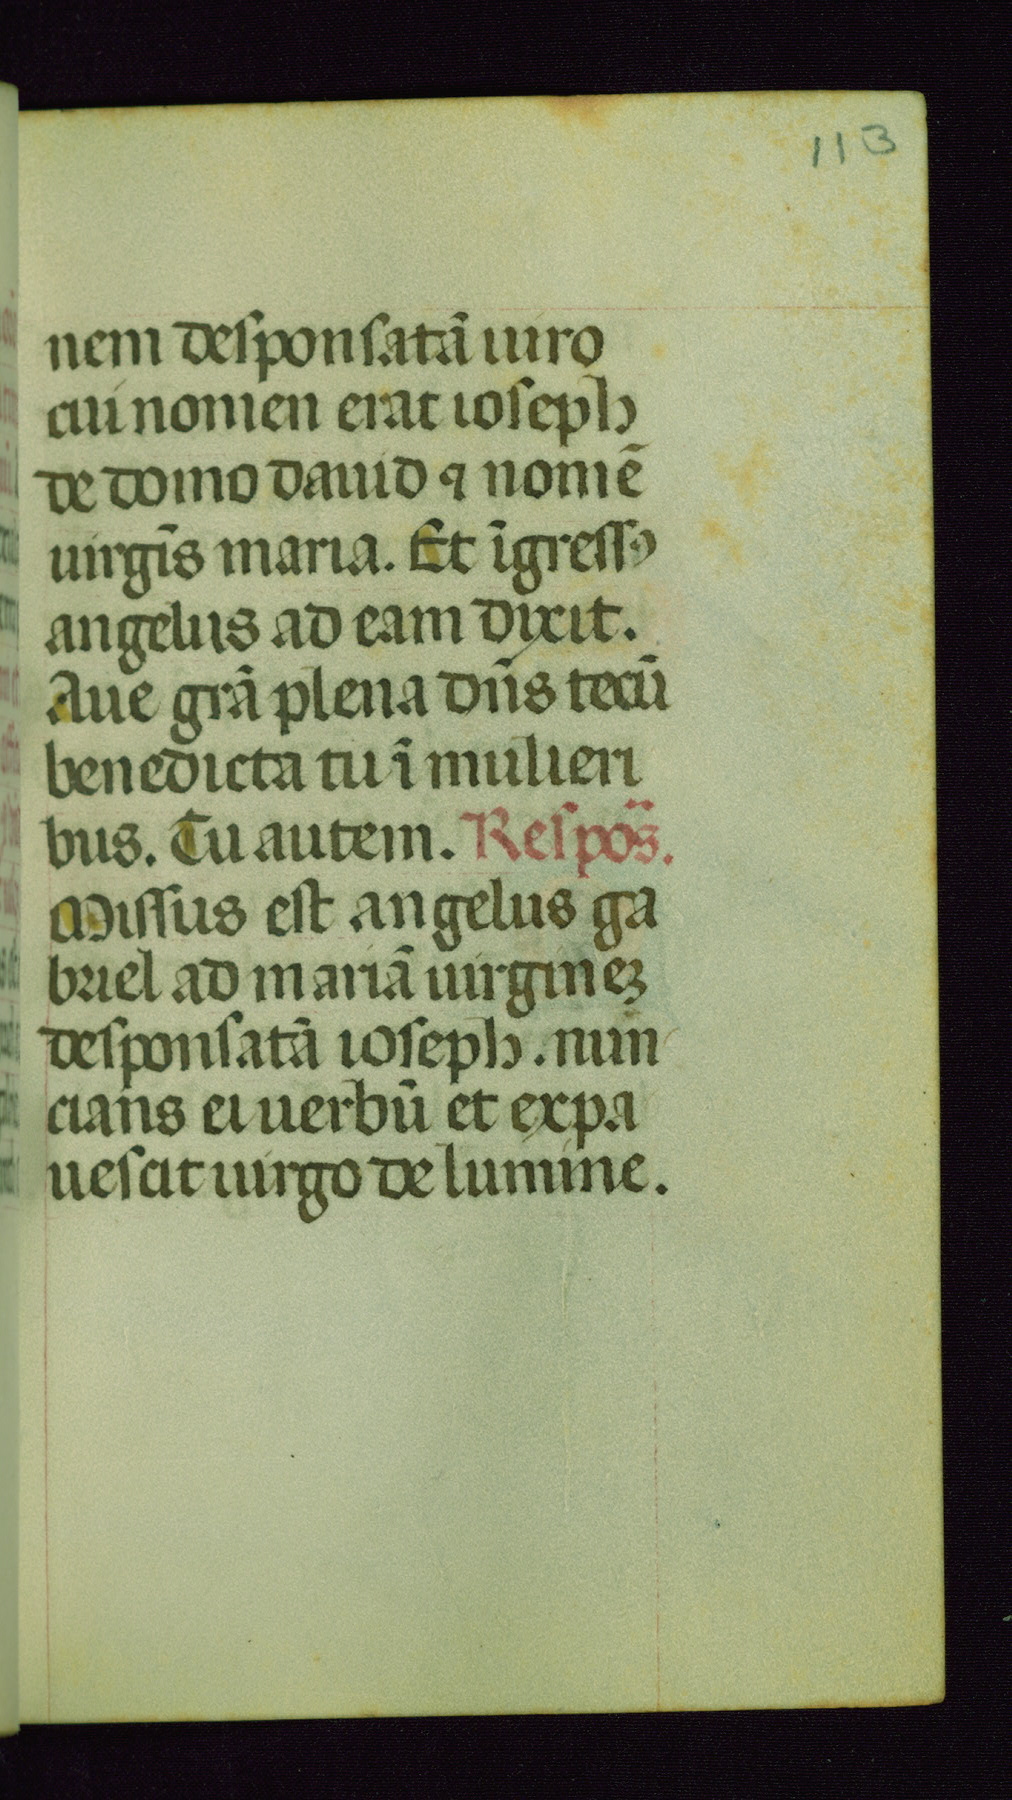 113
nem desponsatā uiro
cui nomen erat ioseph
de domo dauid ⁊ nomē
uirgīs maria. Et īgressꝰ
angelus ad eam dixit.
Aue grā plena dn̄s tecū
benedicta tu ī mulieri
bus. Tu autem. Respōs.
Missus est angelus ga
briel ad mariā uirgineꝫ
desponsatā ioseph. nun
cians ei uerbū et expa
uescit uirgo de lumine.